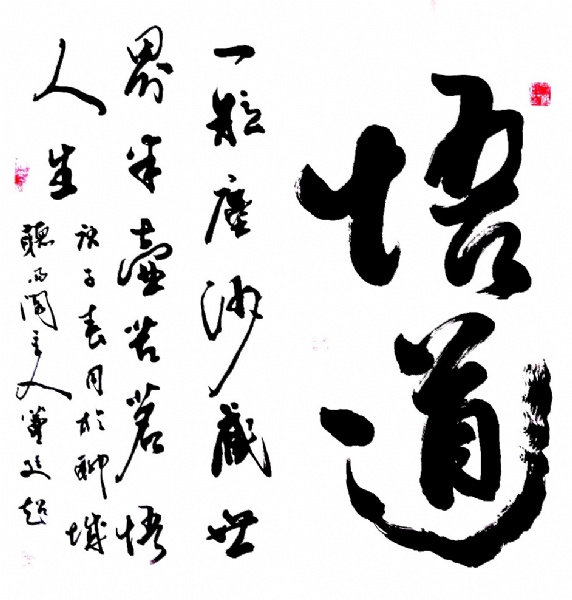 悟道
一粒塵沙藏世
界半壺苦茗悟
人生
庚子春月於聊城
聽雨閣主人